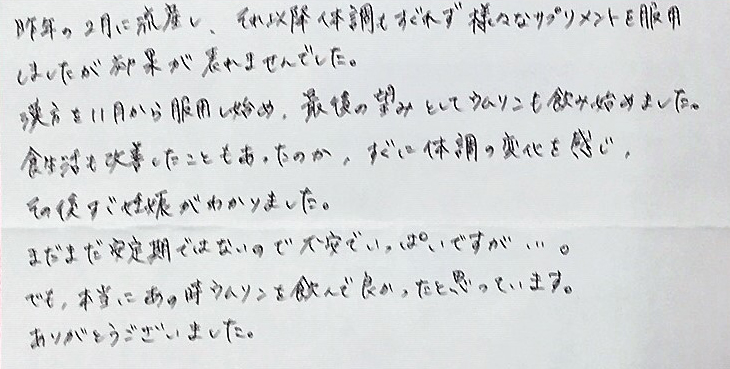 昨年の2月に流産し、それ以降体調もすぐれず様々なサプリメントを服用
しましたが効果が表れませんでした。
漢方を11月から服用し始め、最後の望みとしてウムリンも飲み始めました。
食生活も改善したこともあったのか、すぐに体調の変化を感じ、
その後すぐ妊娠がわかりました。
まだまだ安定期ではないので不安でいっぱいですが…。
でも、本当にあの時ウムリンを飲んで良かったと思っています。
ありがとうございました。